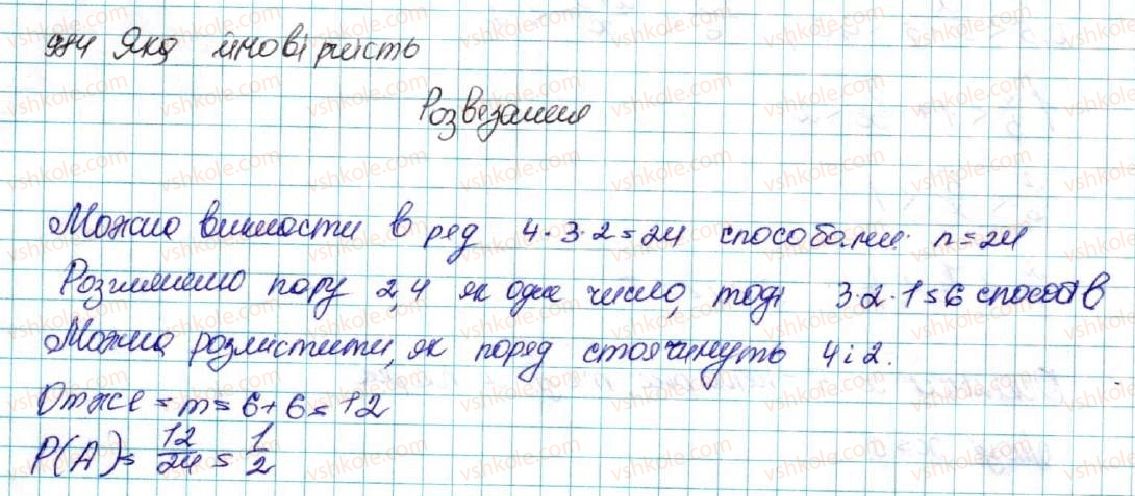 984 Яка ймовірність
Розвезання
Можна виписти в ряд 4·3·2=24 способами. n=24
Розглянемо пару 2,4 як одне число, тоді 3·2·1=6 способів
Можна розмістити, як поряд 4 і 2.
Отже = m=6+6=12
P(A)= 12/24 = 1/2